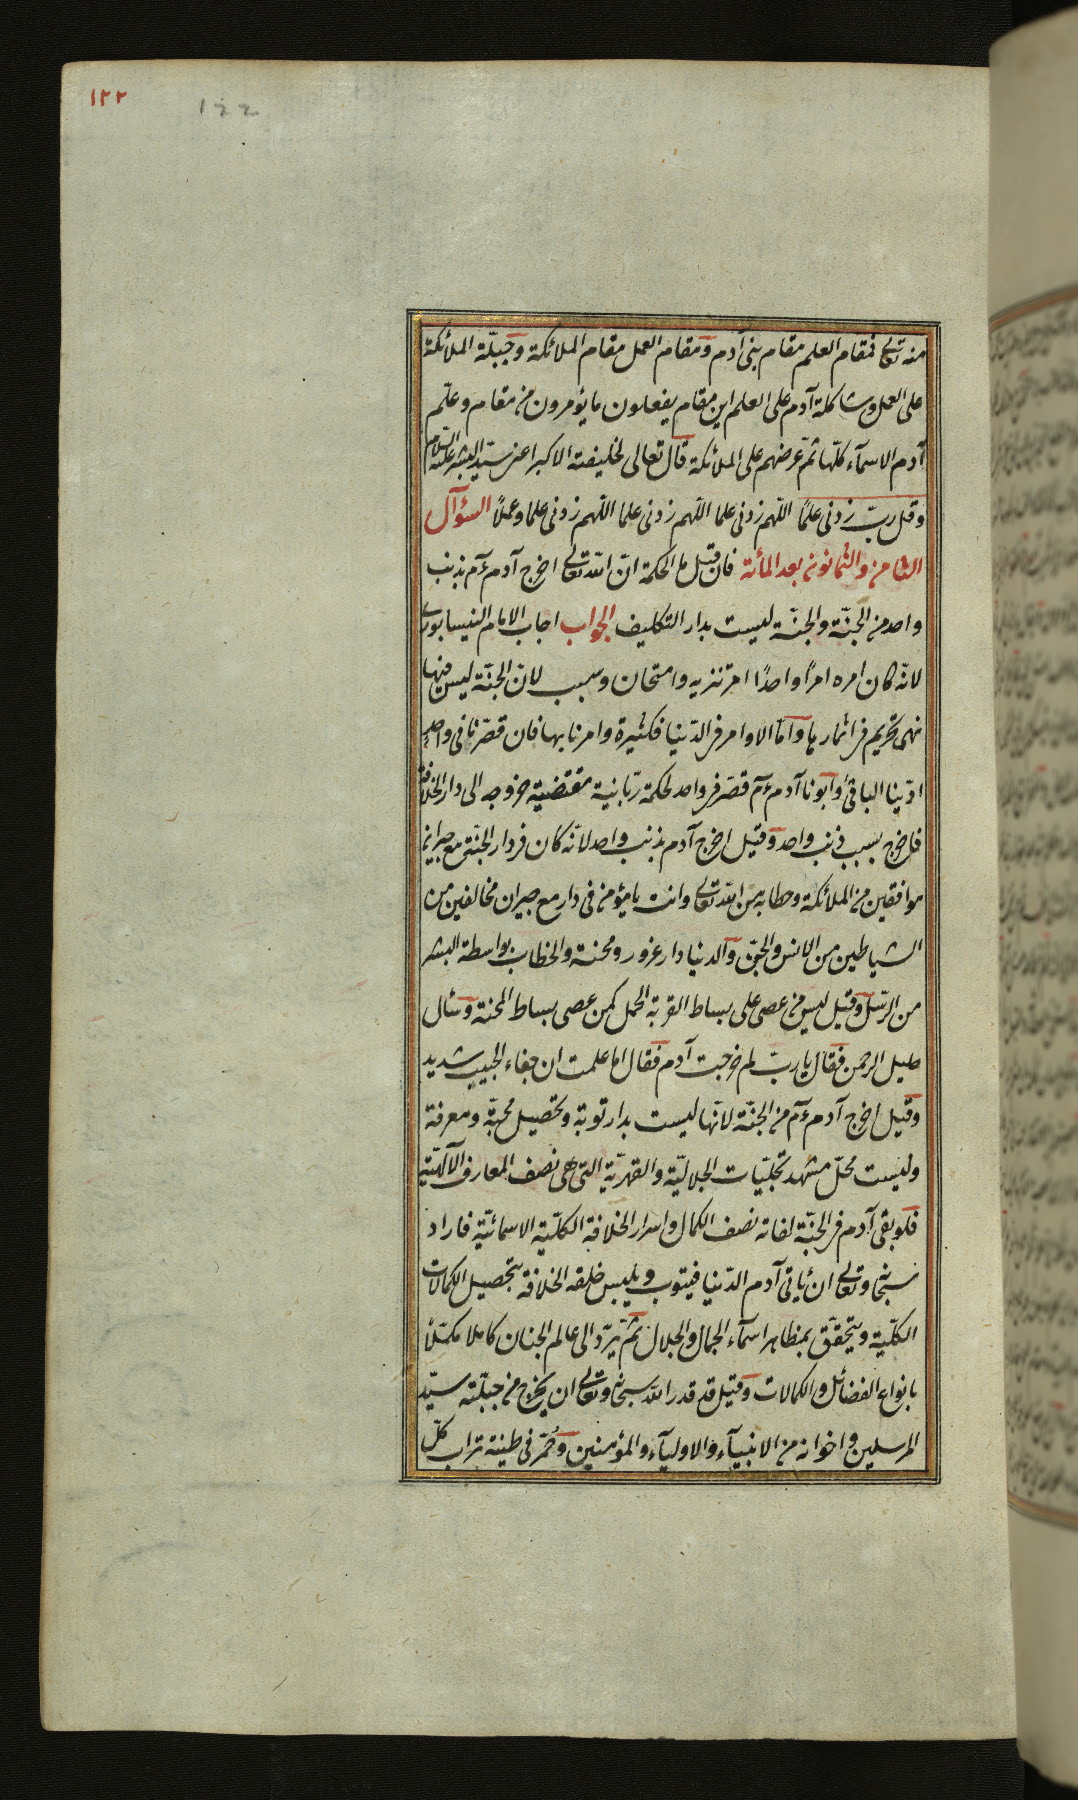 ١٢٢
122
منه تعالى فمقام العلم مقام بنى آدم ومقام العمل مقام الملائكة وجبلّة الملائكة
على العمل وشاكلة آدم على العلم اين مقام يفعلون ما يؤمرون من مقام وعلّم
آدم الاسمآء كلّها ثمّ عرضهم على الملائكة قال تعالى لخليفته الاكبر اعنى سيّد البشر عليه السّلام
وقل ربّ زدنى علمًا اللّهم زدنى علما اللّهم زدنى علما اللّهم زدنى علما وعملًا السؤآل
الثامن والثمانون بعد المائة فان قيل ما الحكمة انّ اللّه تعالى اخرج آدم ءم بذنب
واحد من الجنّة والجنّة ليست بدار التكليف الجواب اجاب الامام النيسابورى
لانّه كان امره امرًا واحدًا امر تنزيه وامتحان وسبب لانّ الجنّة ليس فيها
نهى تحريم فى اثمارها وامّا الاوامر فى الدّنيا فكثيرة وامرنا بها فان قصّرنا فى واحدٍ
ادّينا الباقى وابونا آدم ءم قصّر فى واحد لحكمة ربّانية مقتضية خروجه الى دار الخلافة
فاخرج بسبب ذنب واحد وقيل اخرج آدم بذنب واحد لانّه كان فى دار الجنّة مع جيران
موافقين من الملائكة وخطابه من اللّه تعالى وانت يا مؤمن فى دار مع جيران مخالفين من
الشياطين من الانس والجنّ والدنيا دار غرور ومحنة والخطاب بواسطة البشر
من الرّسل وقيل ليس من عصى على بساط القربة الحمل كمن عصى بساط المحنة وسئال
خليل الرحمن فقال يا ربّ لم اخرجت آدم فقال اما علمت ان جفاء الحبيب شديد
وقيل اخرج آدم ءم من الجنّة لانّها ليست بدار توبة وتحصيل محبّة ومعرفة
وليست محلّ مشهد تجلّيات الجلاليّة والقهريّة التى هى نصف المعارف الآلهيّة
فلو بقى آدم فى الجنّة لفاته نصف الكمال واسرار الخلافة الكلّية الاسمائيّة فاراد
سبحانه وتعالى ان ياتى آدم الدّنيا فيتوب ويلبس خلعة الخلافة بتحصيل الكمالات
الكلّية ويتحقّق بمظاهر اسمآء الجمال والجلال ثمّ يردّ الى عالم الجنان كاملا مكمّلًا
بانواع الفضائل والكمالات وقيل قد قدر اللّه سبحانه وتعالى ان يخرج من جبلّته سيّد
المرسلين واخوانه من الانبيآء والاوليآء والمؤمنين وخمّر فى طينة تراب كلّ